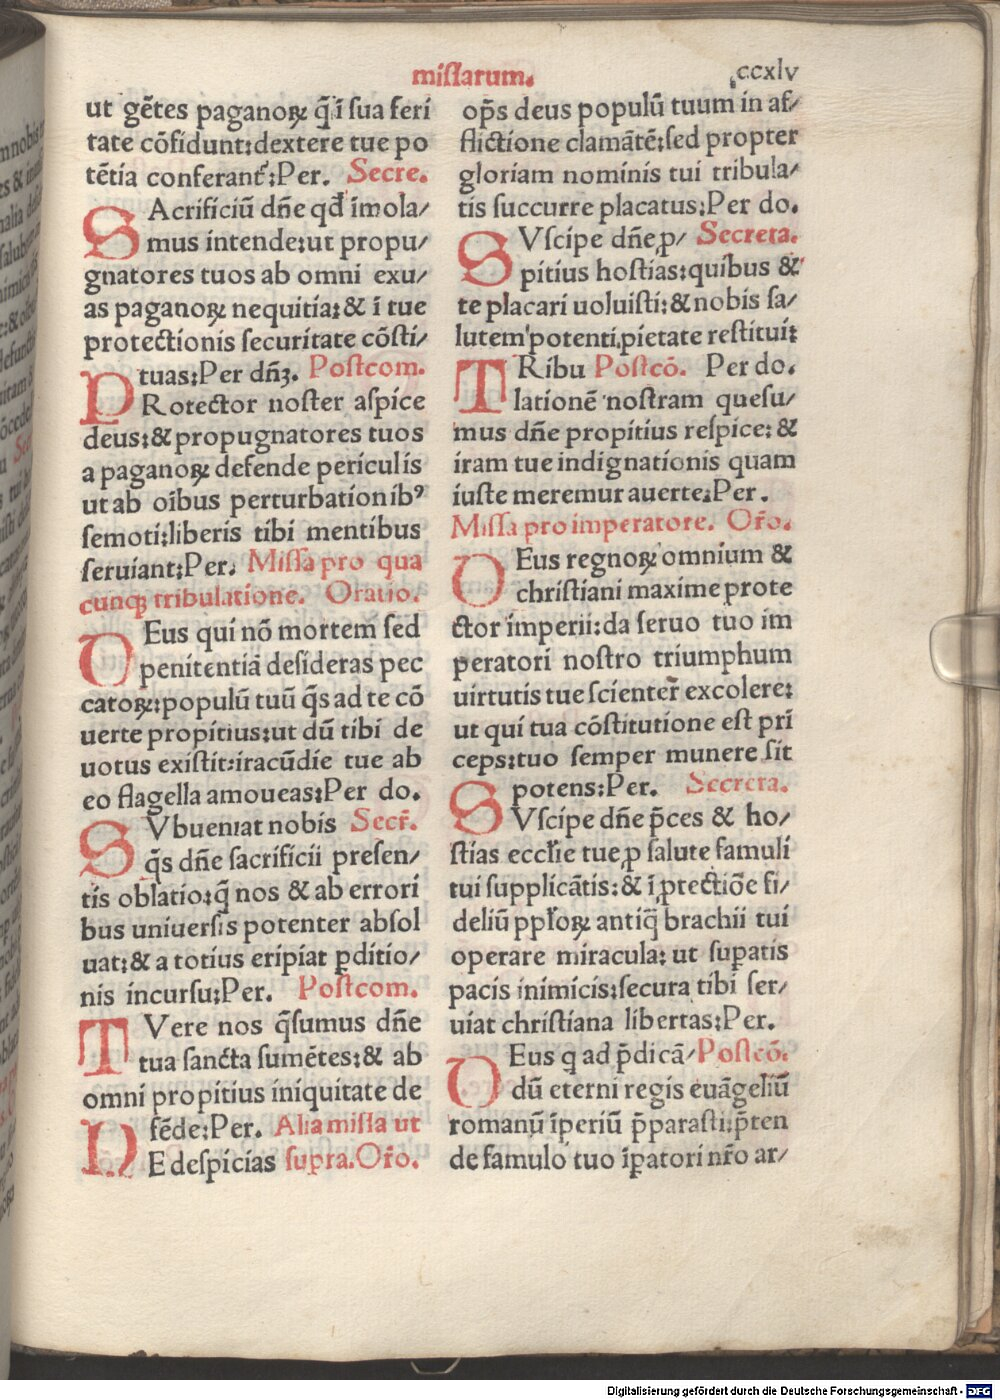 missarum.
ccxlv
ut gẽtes paganoꝝ q̃ ĩ sua feri
tate cõfidunt:dextere tue po
tẽtia conferant᷒:Per. Secre.
SAcrificiũ dñe qđ ĩmola/
mus intende:ut propu/
gnatores tuos ab omni exu/
as paganoꝝ nequitia:& ĩ tue
protectionis securitate cõsti/
tuas:Per dñꝫ. Postcom.
PRotector noster aspice
deus:& propugnatores tuos
a paganoꝝ defende periculis
ut ab oĩbus perturbationibꝰ
semoti:liberis tibi mentibus
seruiant:Per. Missa pro qua
cunqꝫ tribulatione. Oratio.
DEus qui nõ mortem sed
penitentiã desideras pec
catoꝝ:populũ tuũ q̃s ad te cõ
uerte propitius:ut dũ tibi de
uotus existit:iracũdie tue ab
eo flagella amoueas:Per do.
SVbueniat nobis Secr̃.
q̃s dñe sacrificii presen/
tis oblatio:q̃ nos & ab errori
bus uniuersis potenter absol
uat:& a totius eripiat ꝑditio/
nis incursu:Per. Postcom.
TVere nos q̃sumus dñe
tua sancta sumẽtes:& ab
omni propitius iniquitate de
fẽde:Per. Alia missa ut
NE despicias supra. Or̃o.
op̃s deus populũ tuum in af/
flictione clamãtẽ:sed propter
gloriam nominis tui tribula/
tis succurre placatus:Per do.
SVscipe dñe ꝓ/ Secreta.
pitius hostias:quibus &
te placari uoluisti:& nobis sa/
lutem potenti pietate restitui:
TRibu Postcõ. Per do.
lationẽ nostram quesu/
mus dñe propitius respice: &
iram tue indignationis quam
iuste meremur auerte.Per.
Missa pro imperatore. Or̃o.
DEus regnoꝝ omnium &
christiani maxime prote
ctor imperii:da seruo tuo im
peratori nostro triumphum
uirtutis tue scienter̃ excolere:
ut qui tua cõstitutione est pri
ceps:tuo semper munere sit
potens:Per. Secreta.
SVscipe dñe p̃ces & ho/
stias eccłie tue ꝓ salute famuli
tui supplicãtis:& ĩ ꝓtectiõe fi/
deliũ ppłoꝝ antiq̃ brachii tui
operare miracula: ut suꝑatis
pacis inimicis:secura tibi ser/
uiat christiana libertas:Per.
DEus q ad p̃dicã/ Postcõ.
dũ eterni regis euãgeliũ
romanũ ĩperiũ p̃parasti:p̃ten
de famulo tuo ĩꝑatori nr̃o ar/
Digitalisierung gefördert durch die Deutsche Forschungsgemeinschaft - DFG